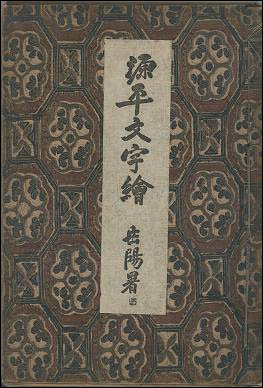 源平文字繪
岳陽署